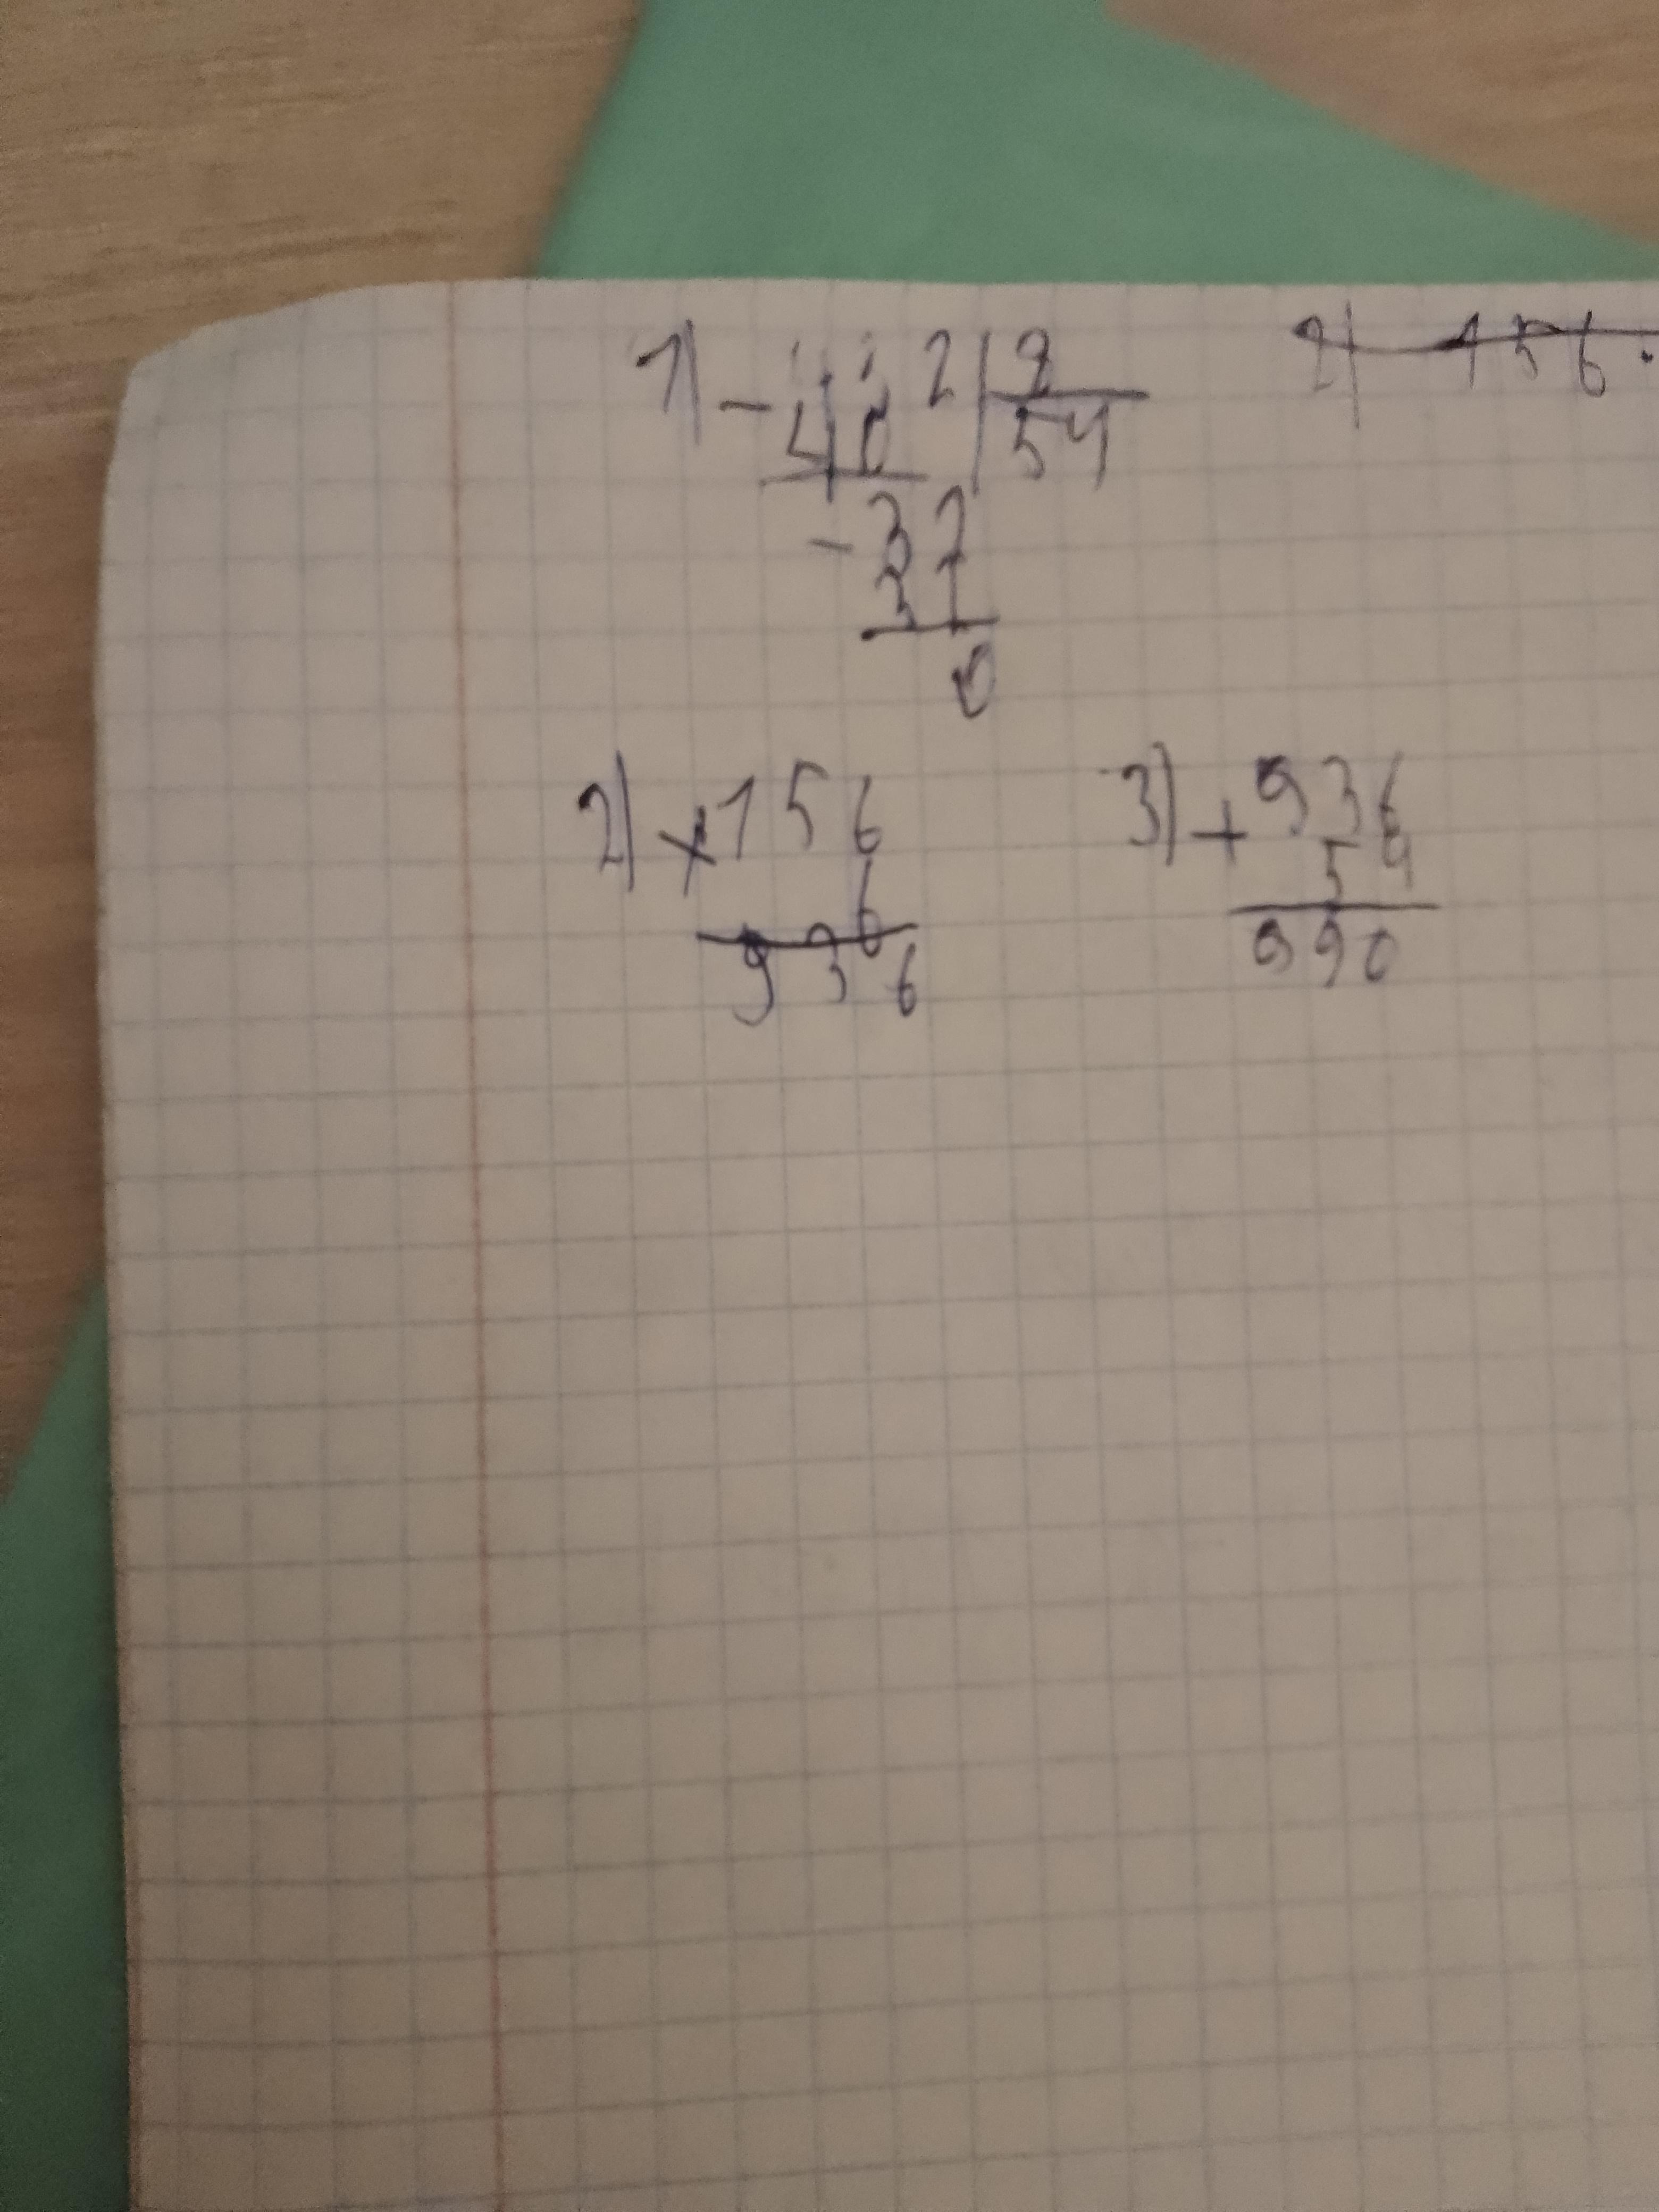 1) - 432 | 8
40 | 54
- 32
32
0
2) 156 ·
2) × 156
6
936
3) + 936
54
990